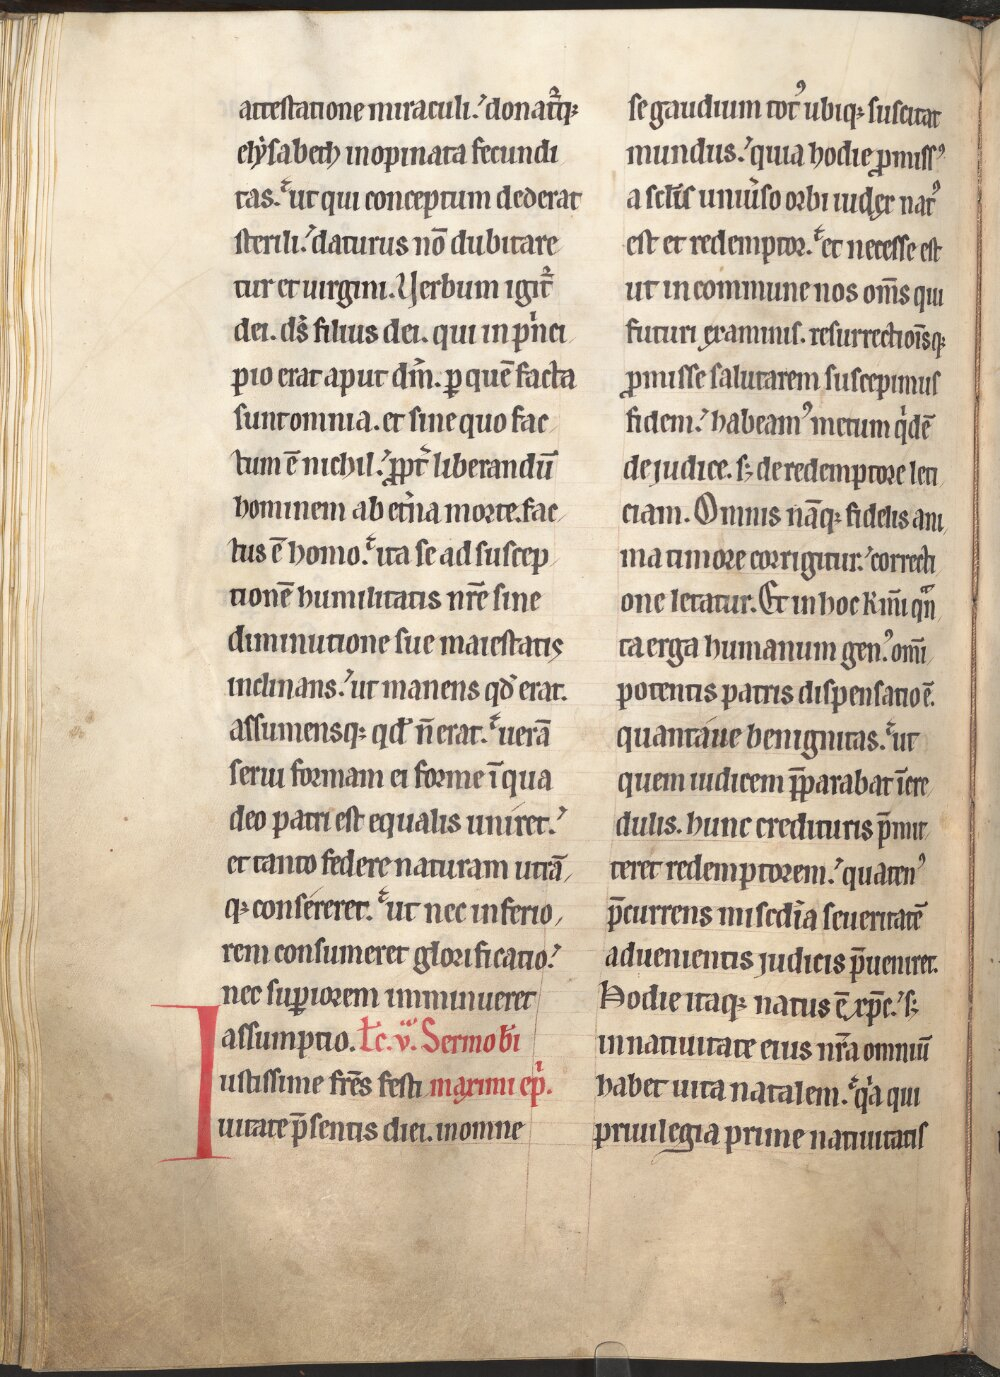 attestatione miraculi. donat᷑q;
elẏsabeth inopinata fecundi
tas. ut qui conceptum dederat
sterili. daturus nō dubitare
tur et uirgini. Verbum igit᷑
dei. ds̄ filius dei. qui in pͥnci
pio erat aput dm̄. ꝑ quē facta
sunt omnia. et sine quo fac
tum ē nichil. ꝓpt᷑ liberandū
hominem ab et̾na morte. fac
tus ē homo. ita se ad suscep
tionē humilitatis nrē sine
diminutione sue maiestatis
inclinans. ut manens qd̾ erat.
assumensq; qd̾ n̄ erat. uerā
serui formam ei forme ī qua
deo patri est equalis uniret.
et tanto federe naturam utrā
q; conséreret. ut nec inferio
rem consumeret glorificatio.
nec suꝑiorem imminueret
assumptio. Lc̄. v. Sermo bt̄i
Iustissime fres̄ festi maximi ep̄i.
uitate p̄sentis diei. in omne
se gaudium totꝰ ubiq; suscitat
mundus. quia hodie ꝓmissꝰ
a sclīs uniu̾so orbi iudex natꝰ
est et redemptor. et necesse est
ut in commune nos om̄s qui
futuri examinis. resurrectiōisq;
ꝓmisse salutarem suscepimus
fidem. habeamꝰ metum qͥdē
de judice. s; de redemptore leti
ciam. Omnis nāq; fidelis ani
ma timore corrigitur. correcti
one letatur. Et in hoc kmī qn̄
ta erga humanum genꝰ omī
potentis patris dispensatio ē.
quantáue benignitas. ut
quem iudicem p̄parabat īcre
dulis. hunc credituris p̄mit
teret redemptorem. quatenꝰ
p̄currens misc̄dia seueritatē
aduenientis judicis p̄ueniret.
Hodie itaq; natus ē xp̄c. s;
in natiuitate eius nr̄a omniū
habet uita natalem. qͥa qui
priuilegia prime natiuitatis